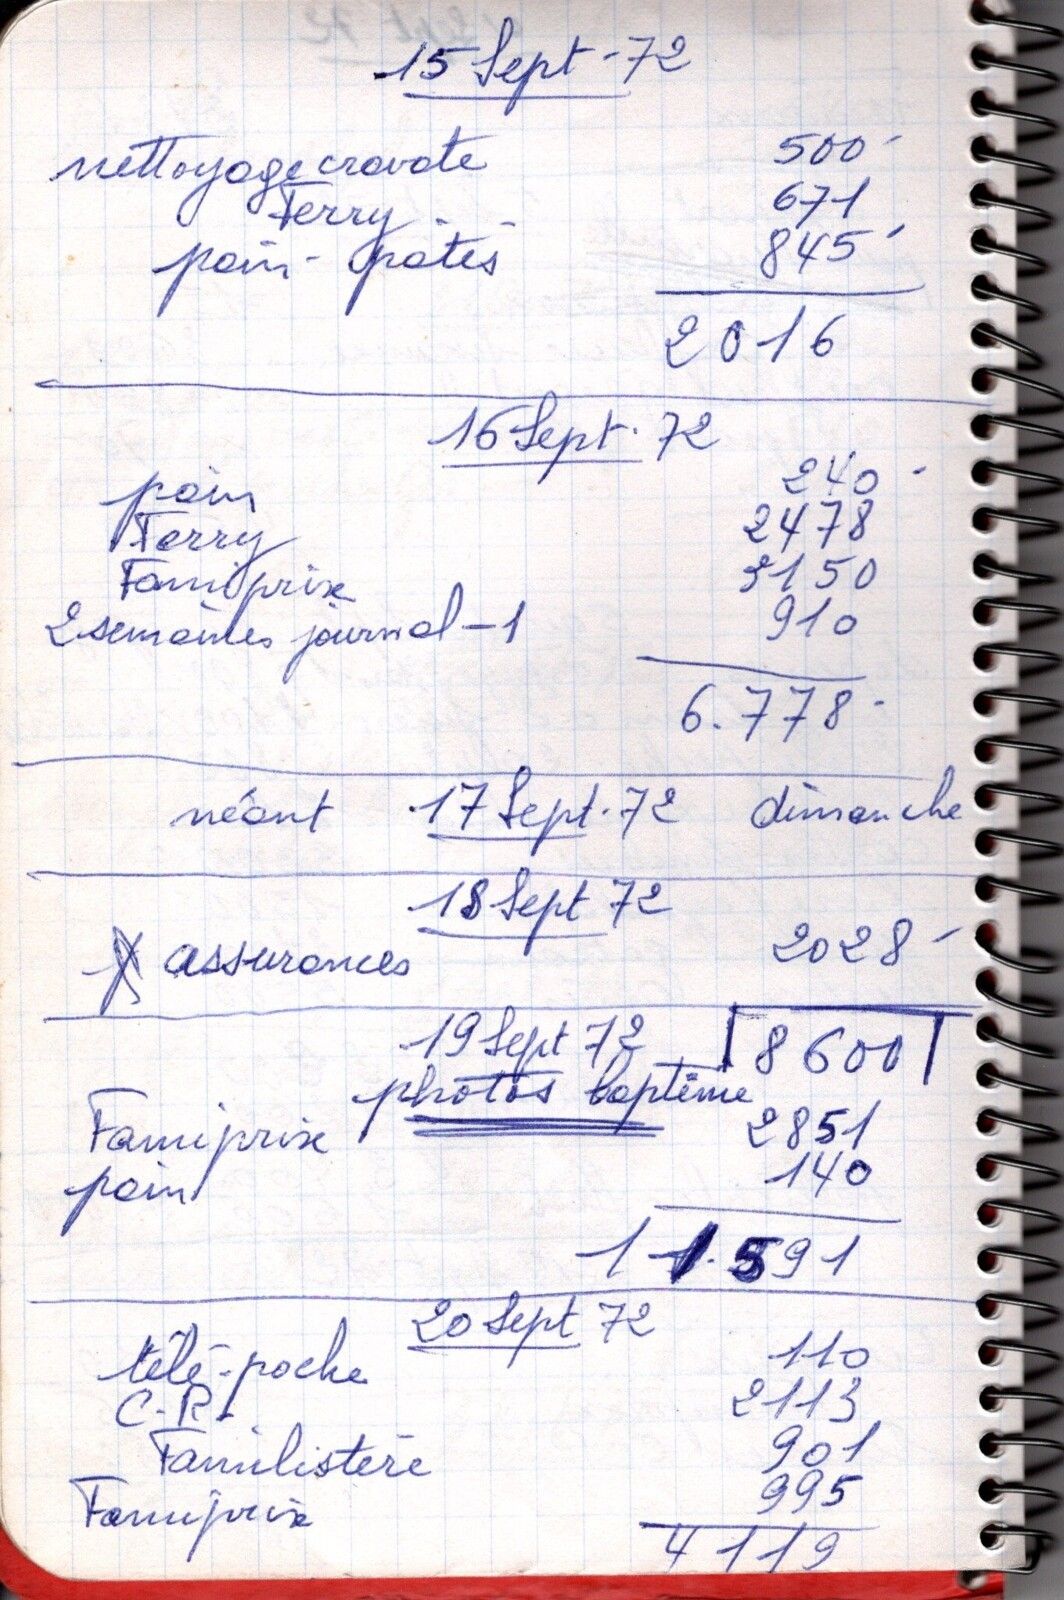 15 Sept - 72
nettoyage cravate 500 -
Ferry - - 671
pain - pâtés 845 -
2016
16 Sept. 72
pain 240 -
Ferry 2478
Famiprix 3150
2 semaines journal - 1 910
6.778 -
néant 17 Sept. 72 dimanche
18 Sept 72
assurances 2028 -
19 Sept 72 8600
photos baptême
Famiprix 2851
pain 140
11.591
20 Sept 72
télé-poche 110
C-R- 2113
Familistère 901
Famiprix 995
4119